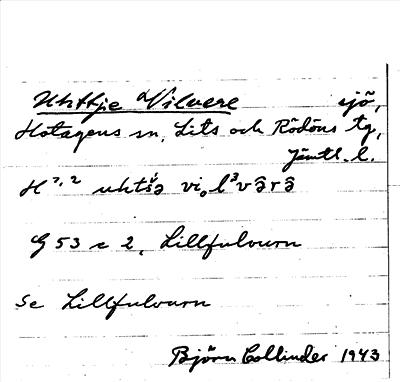 Uhttje Vilvere sjö,
Hotagens sn, Lits och Rödöns tg,
Jämtl. l.
H 7,2 uhtśə vi₀l³vârâ
G 53 c 2, Lillfulvurn
Se Lillfulvurn
Björn Collinder 1943